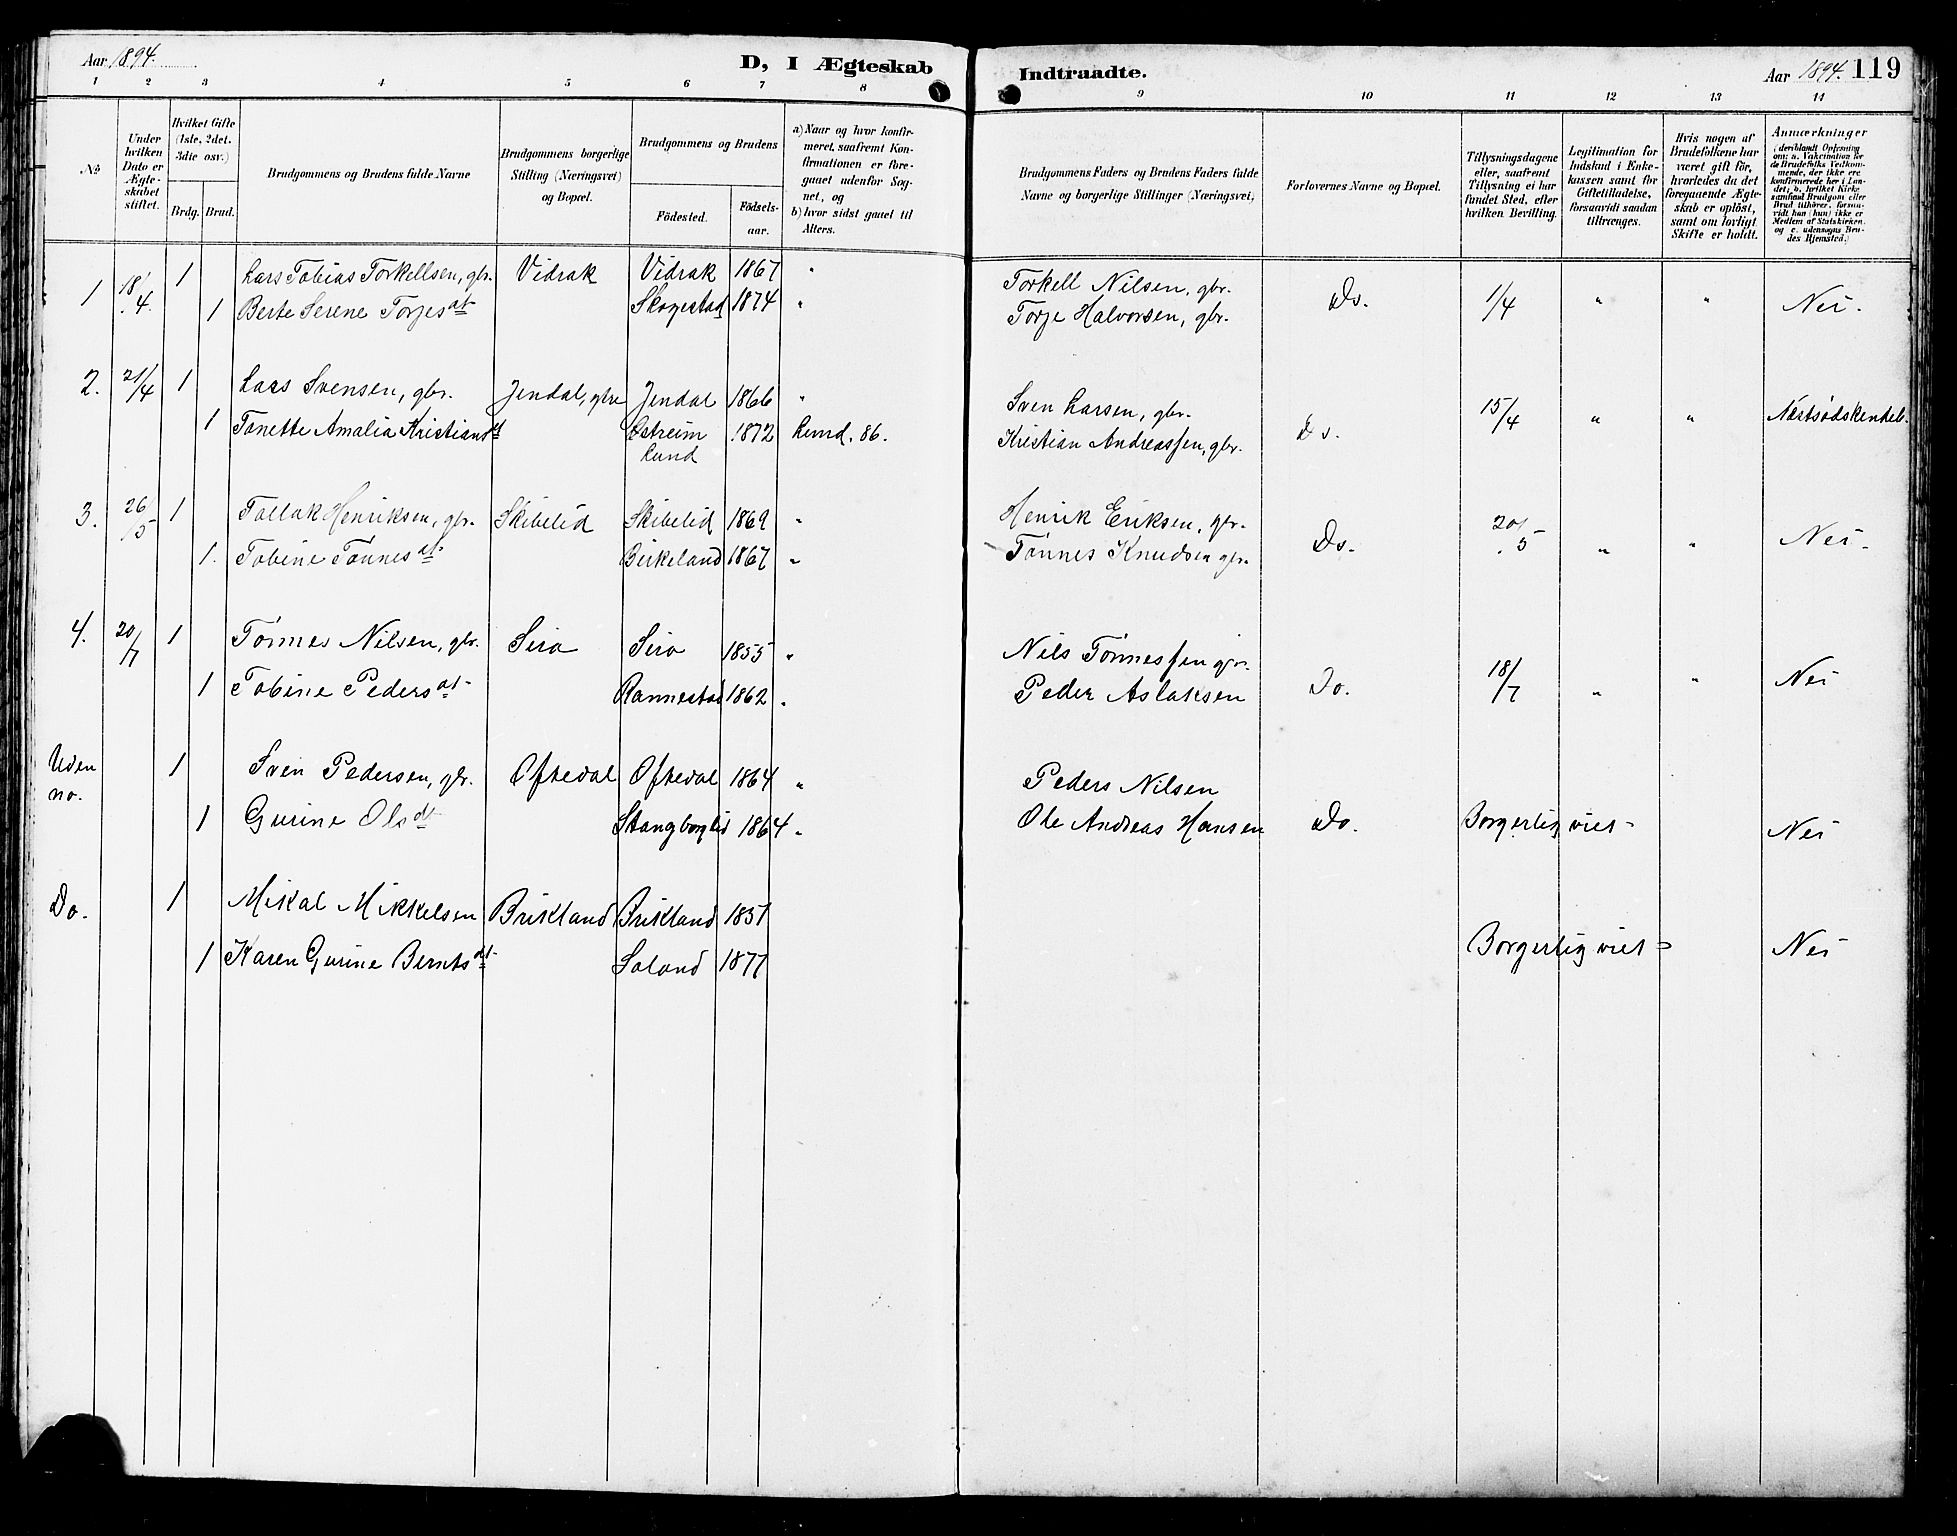 Aar 1894.
D, I Ægteskab
Indtraadte.
Aar 1894. 119
1 2 3 4 5 6 7 8 9 10 11 12 13 14
No
Under hvilken Dato er Ægteskabet stiftet.
Hvilket Gifte (1ste, 2det, 3die osv.)
Brdg. Brud.
Brudgommens og Brudens fulde Navne
Brudgommens borgerlige Stilling (Næringsvei) og Bopæl.
Brudgommens og Brudens
Födested.
Födselsaar.
a) Naar og hvor konfirmeret, saafremt Konfirmationen er foregaaet udenfor Sognet, og
b) hvor sidst gaaet til Alters.
Brudgommens Faders og Brudens Faders fulde Navne og borgerlige Stillinger (Næringsvei)
Forlovernes Navne og Bopæl.
Tillysningsdagene eller, saafremt Tillysning ei har fundet Sted, efter hvilken Bevilling.
Legitimation for Indskud i Enkekassen samt for Giftetilladelse, forsaavidt saadan tiltrænges.
Hvis nogen af Brudefolkene har været gift før, hvorledes du det foregaaende Ægteskab er opløst, samt om lovligt Skifte er holdt.
Anmærkninger (deriblandt Oplysning om: a. Vakcination for de Brudefolks Vedkommende, der ikke ere konfirmerede her i Landet; b. hvilket Kirkesamfund Brudgom eller Brud tilhører, forsaavidt han (hun) ikke er Medlem af Statskirken, og c. udensogns Brudes Hjemsted.)
1 18/4. 1 Lars Tobias Torkellsen, gbr. Vidrak Vidrak 1867 "
1 Berte Serene Torjesdt Skogestad 1874 "
Torkell Nilsen, gbr.
Torje Halvorsen, gbr. Do. 1/4 " " Nei.
2. 21/4 1 Lars Svensen, gbr. Jendal, gbr Jendal 1866 "
1 Tanette Amalia Kristiansdt Østreim Lund 1872 Lund. 86.
Sven Larsen, gbr.
Kristian Andreassen, gbr. Do. 15/4 " " Næstsødskendeb.
3. 26/5 1 Tallak Henriksen, gbr. Skibelid Skibelid 1869 "
1. Tobine Tønnesdt Birkeland 1867 "
Henrik Eriksen, gbr.
Tønnes Knudsen gbr. Do. 20/5 " " Nei.
4. 20/7 1 Tønnes Nilsen, gbr. Sira Sira 1855 "
1 Tobine Pedersdt Rannestad 1862 "
Nils Tønnessen gbr.
Peder Aslaksen Do. 18/7 " " Nei
Uden no. 1 Sven Pedersen, gbr. Oftedal Oftedal 1864 "
1 Gurine Olsdt Stangborglid 1864 "
Peders Nilsen
Ole Andreas Hansen Do. Borgerlig viet- Nei
Do. 1 Mikal Mikkelsen Brikland Brikland 1851
1 Karen Gurine Berntsdt Saland 1877
Borgerlig viet- Nei